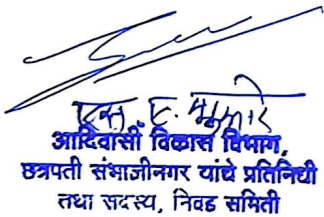 एस. ए.
आदिवासी विकास विभाग,
छत्रपती संभाजीनगर यांचे प्रतिनिधी
तथा सदस्य, निवड समिती